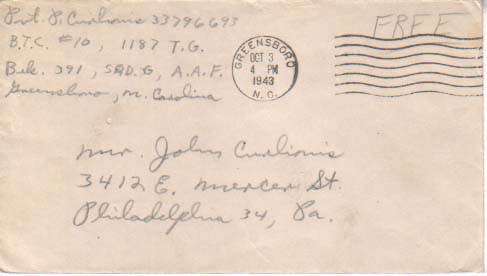 Pvt. P. Curlionis 33796693
B.T.C. #10, 1187 T.G.
Bk. 391, SQD. G, A.A.F.
Greensboro, N. Carolina
GREENSBORO
OCT 3
4 PM
1943
N.C.
FREE
Mr. John Curlionis
3412 E. Mercer St.
Philadelphia 34, Pa.